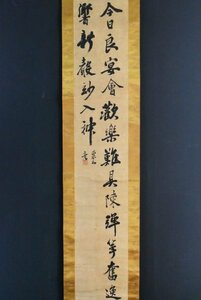 今日良宴會歡樂難具陳彈箏奮逸
響新聲妙入神